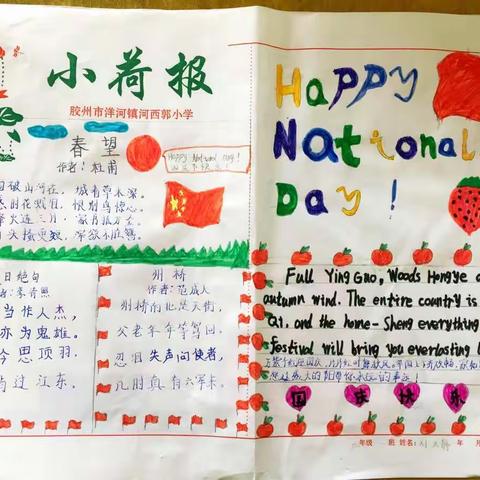 小荷报
胶州市洋河镇河西郭小学
春望
作者:杜甫
Happy National day!
破山河在,城春草木深。
感时花溅泪,恨别鸟惊心。
烽火连三月,家书抵万金。
白头搔更短,浑欲不胜簪。
日绝句
者:李清照
当作人杰,
亦为鬼雄。
今思项羽,
肯过江东。
州桥
作者:范成大
州桥南北是天街,
父老年年等驾回。
忍泪失声问使者,
几时真有六军来
Happy
National
Day!
Full Ying Guo, Woods Hongye
autumn wind. The entire country is
Qi, and the home-Sheng everything
festival will bring you everlasting
国庆快乐
年级 班 姓名: 年 月